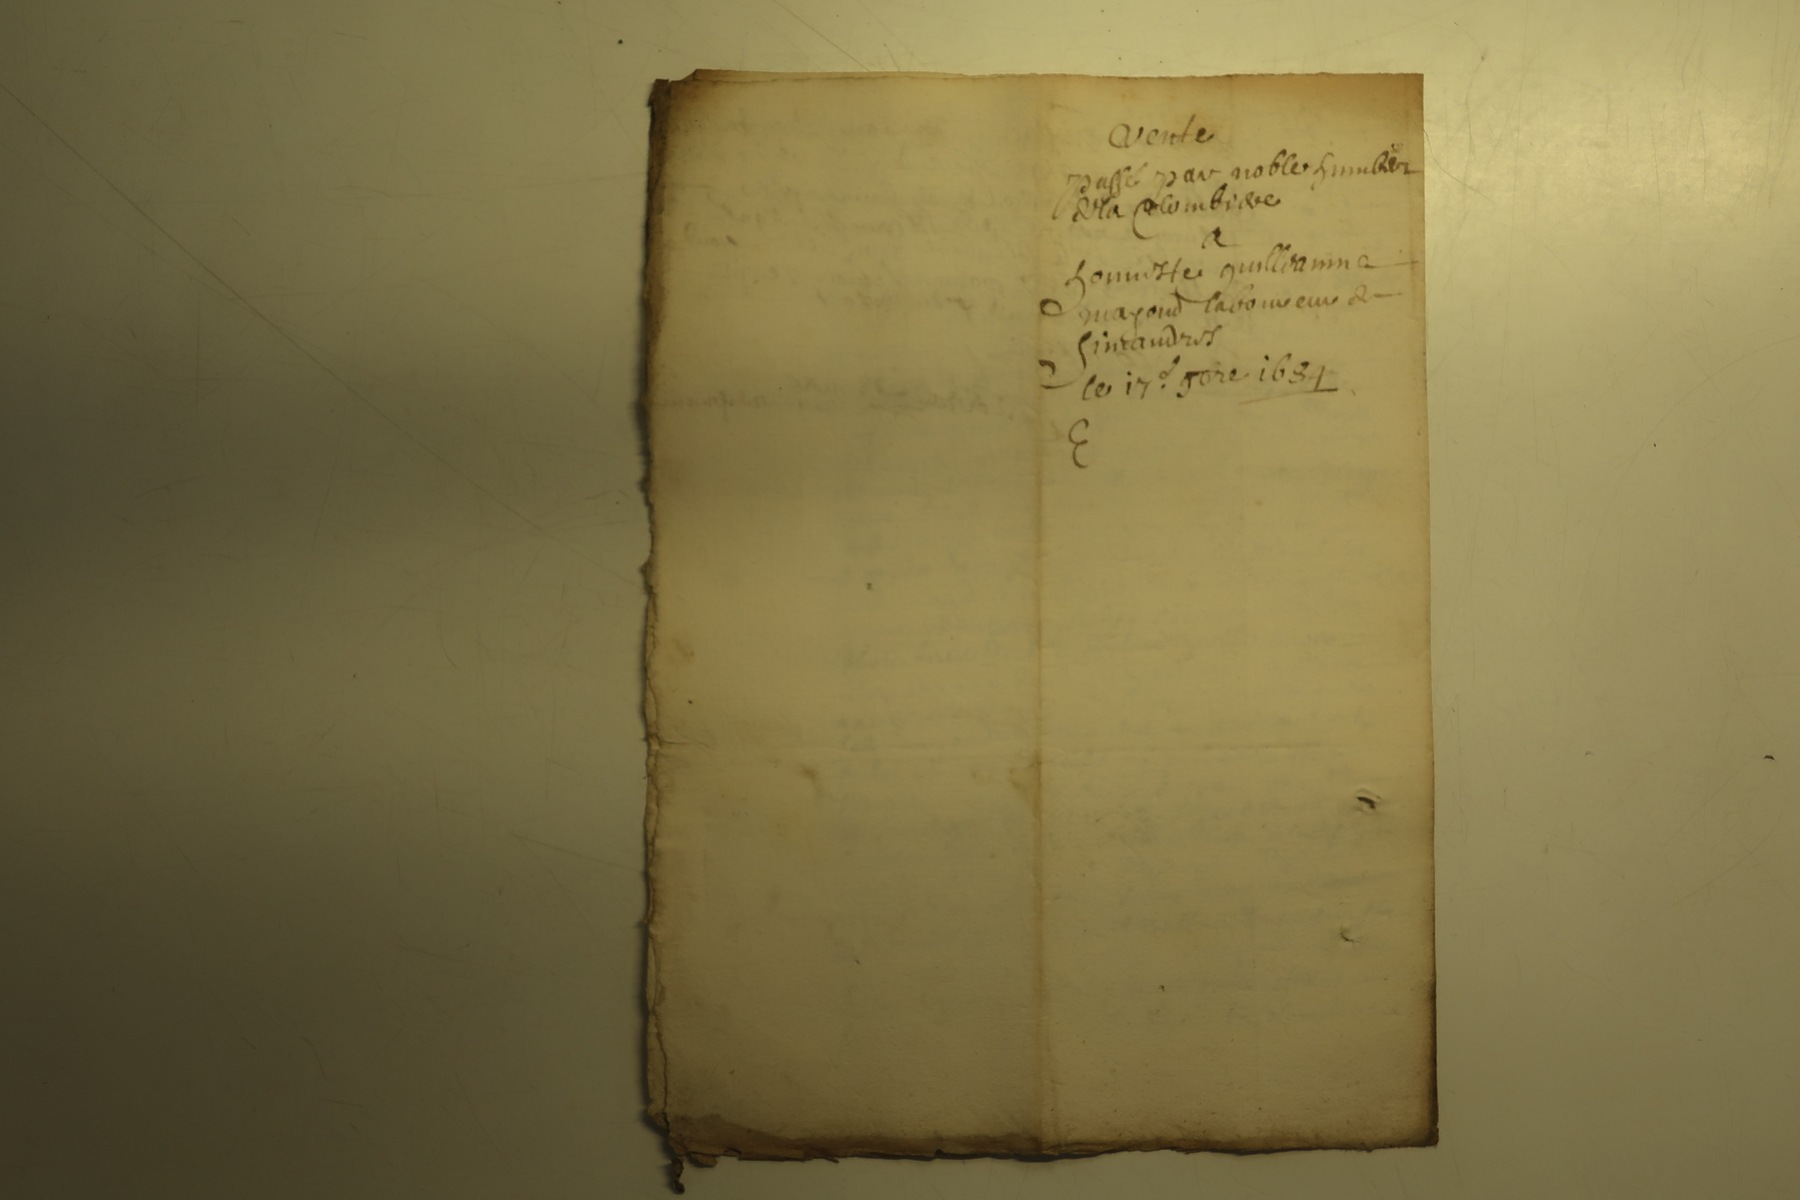 Vente
passé par noble humber
de la Colombiere
a
honneste guillauma
mayoud laboureur de
sintandres
le 17.e 9bre 1684
E